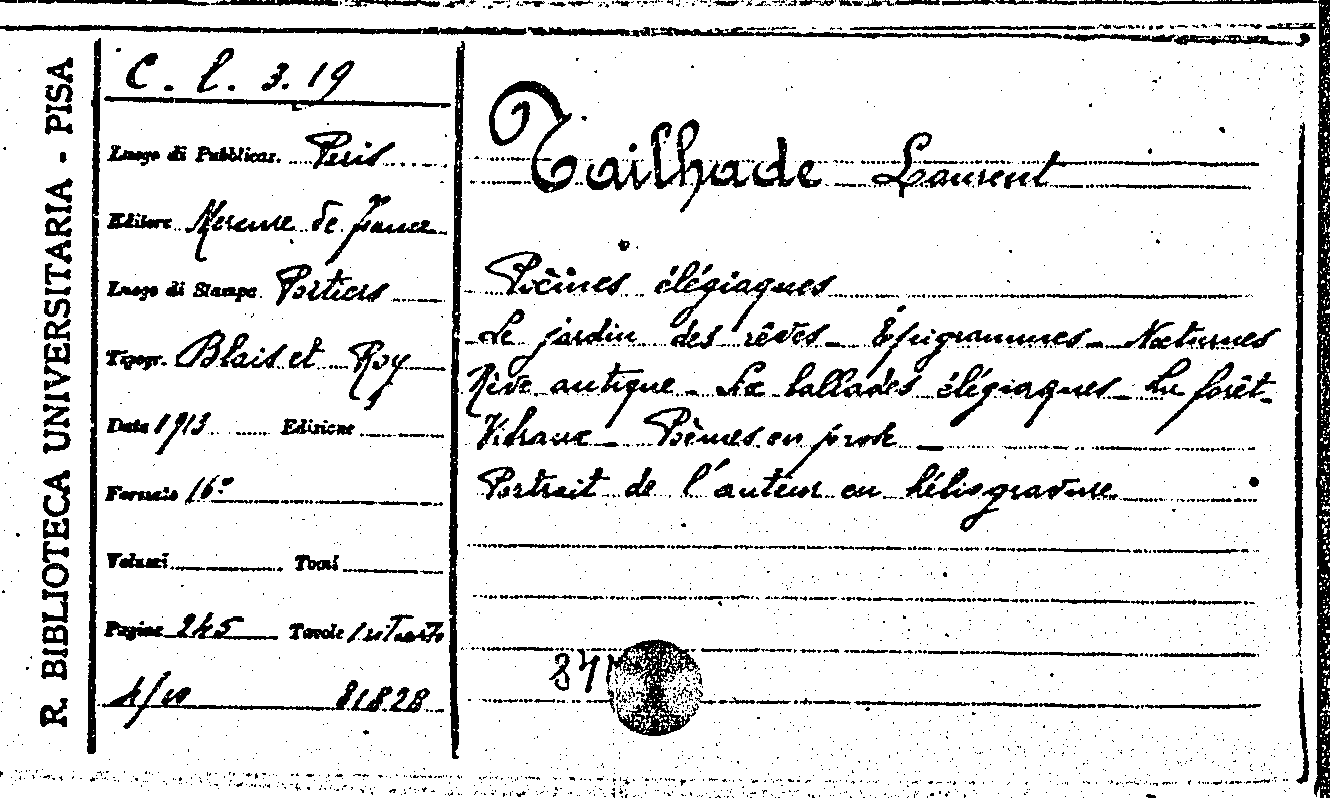 R. BIBLIOTECA UNIVERSITARIA - PISA
C. l. 3. 19
Luogo di Pubblicaz. Paris
Editore Mercure de France
Luogo di Stampa Poitiers
Tipogr. Blais et Roy
Data 1913 Edizione
Formato 16º
Volumi Tomi
Pagine 245 Tavole 1 ritratto
81828
Tailhade Laurent
Poèmes élégiaques
Le jardin des rêves - Épigrammes - Nocturnes
Rêve antique - Six ballades élégiaques - La forêt -
Vitraux - Poèmes en prose -
Portrait de l'auteur en héliogravure.